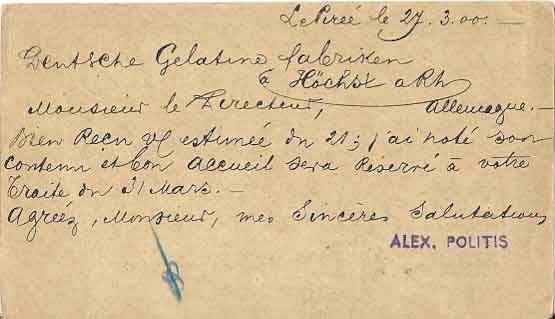 Le Pirée le 27. 3. 00. —
Deutsche Gelatine fabriken
à Höchst a Rh
Monsieur le Directeur, Allemagne.
Bien Reçu estimée du 21; j'ai noté son
contenu et bon accueil sera Réservé à votre
traite du 31 Mars. —
Agréez, Monsieur, mes Sincères Salutations
ALEX. POLITIS